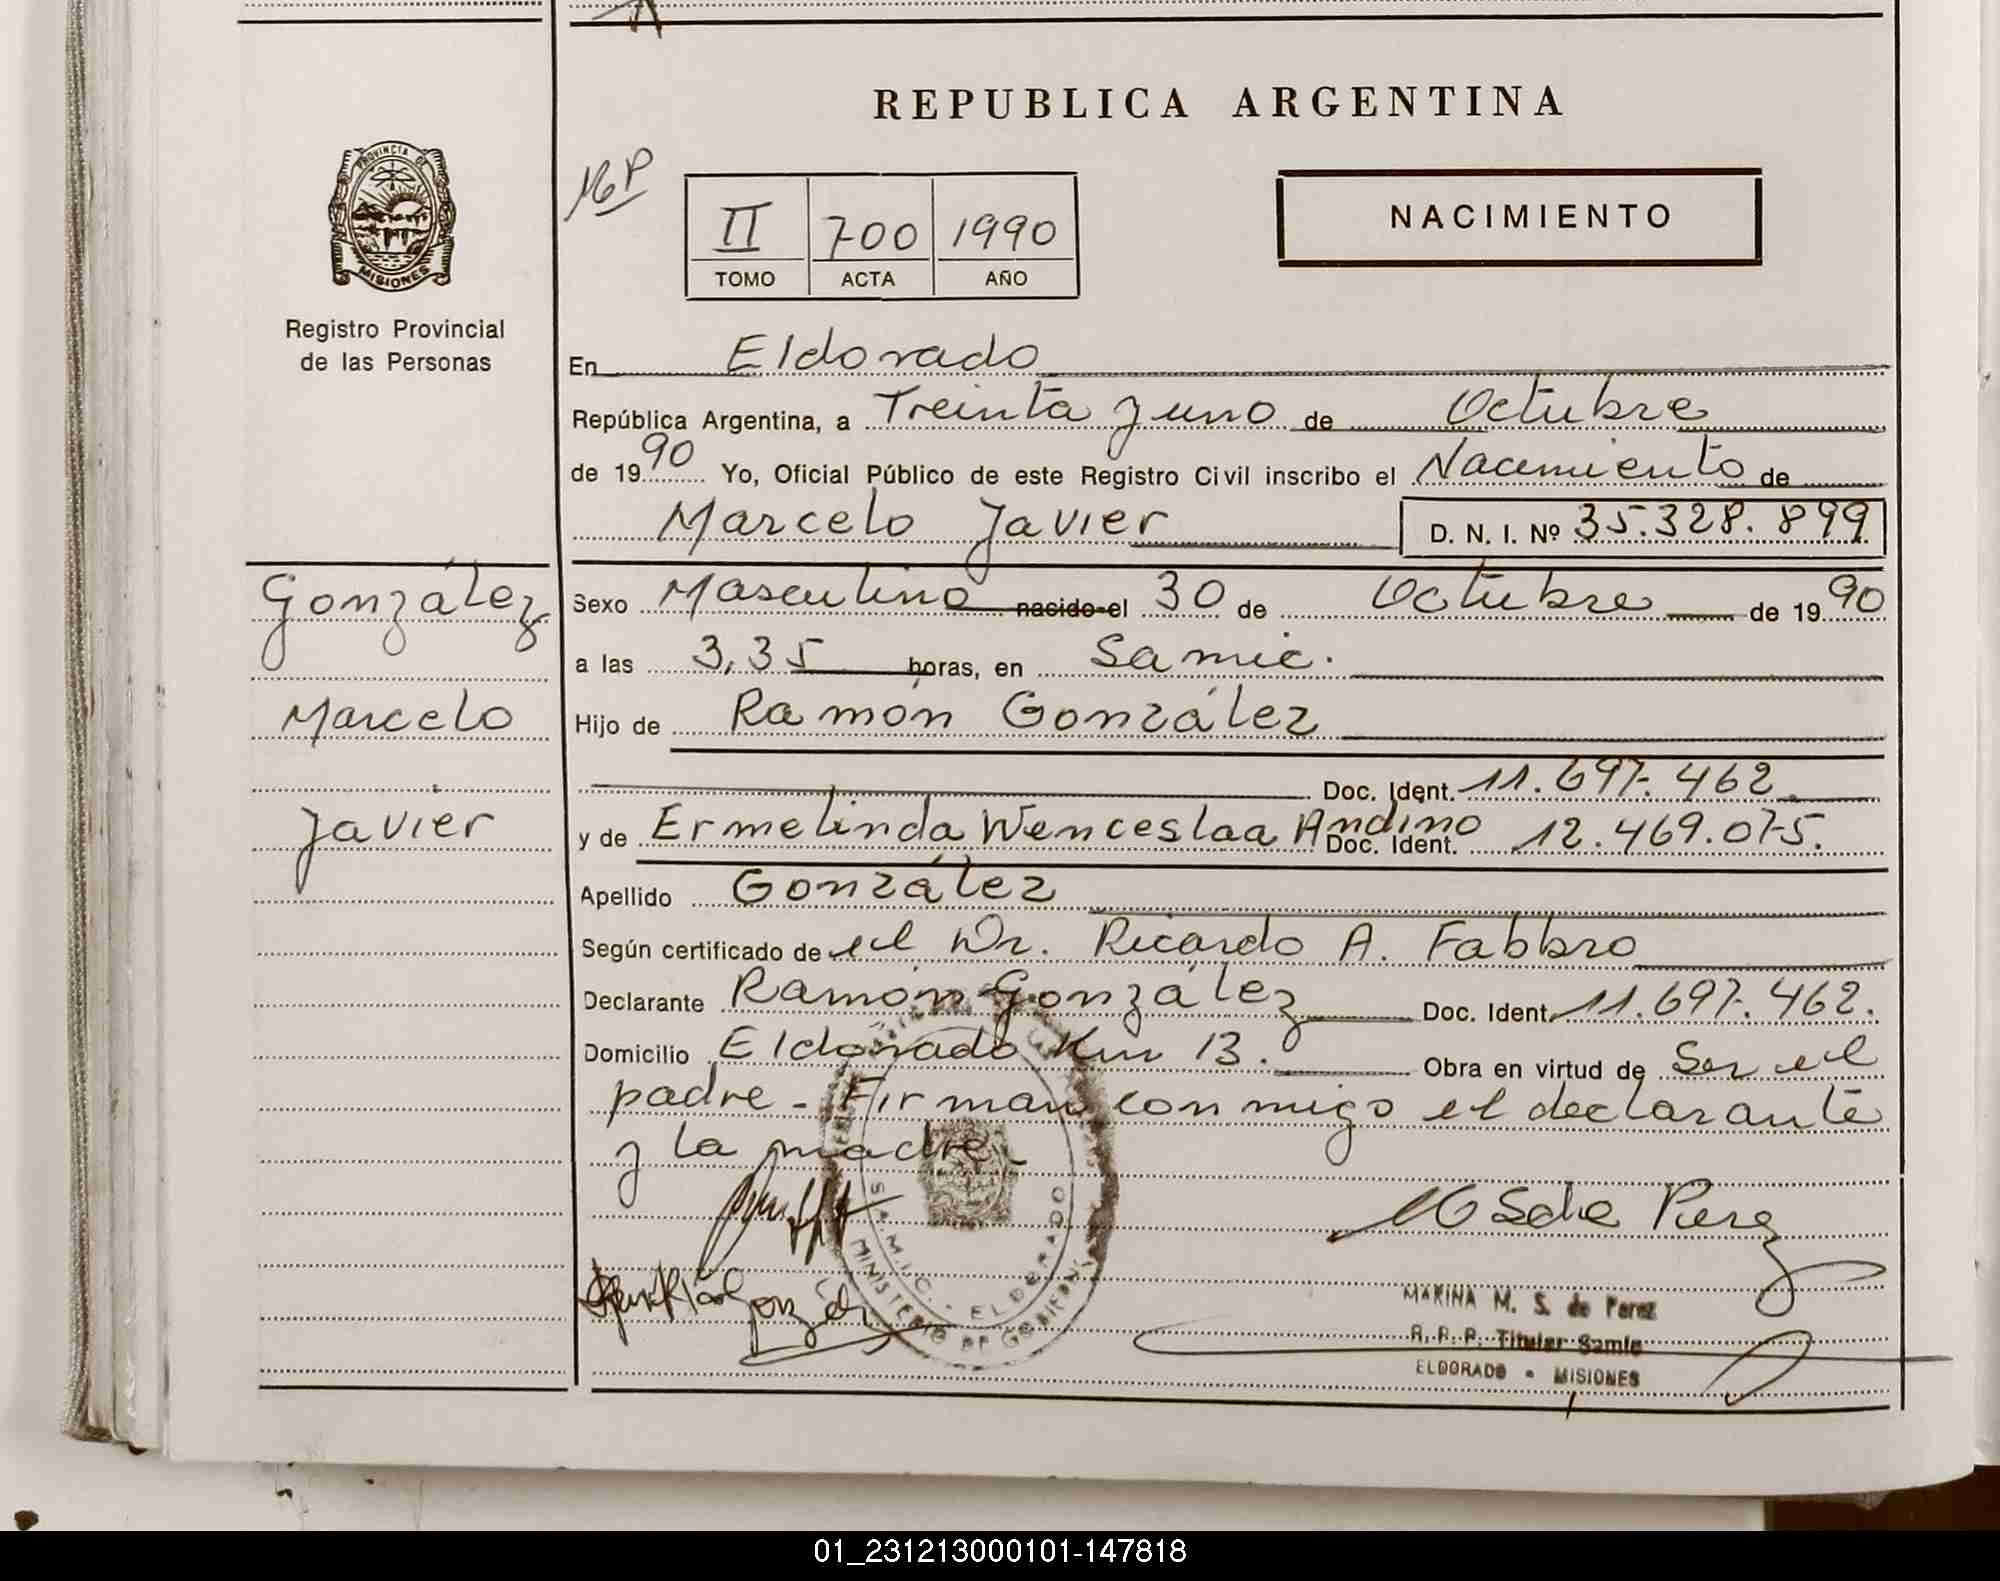 REPUBLICA ARGENTINA
PROVINCIA DE
MISIONES
Registro Provincial
de las Personas
II 700 1990
TOMO ACTA AÑO
NACIMIENTO
En Eldorado
República Argentina, a Treinta y uno de Octubre
de 1990 Yo, Oficial Público de este Registro Civil inscribo el Nacimiento de
Marcelo Javier D. N. I. Nº 35.328.899
González
Marcelo
Javier
Sexo Masculino nacido el 30 de Octubre de 1990
a las 3,35 horas, en Samic.
Hijo de Ramón González
Doc. Ident. 11.697.462.
y de Ermelinda Wenceslaa Andino Doc. Ident. 12.469.075.
Apellido González
Según certificado de el Dr. Ricardo A. Fabbro
Declarante Ramón González Doc. Ident. 11.697.462.
Domicilio Eldorado Km 13. Obra en virtud de Ser el
padre - Firman conmigo el declarante
y la madre.
S.A.M.I.C. - ELDORADO
MINISTERIO DE GOBIERNO
MARINA M. S. de Perez
R. P. P. Titular Samic
ELDORADO - MISIONES
01_231213000101-147818